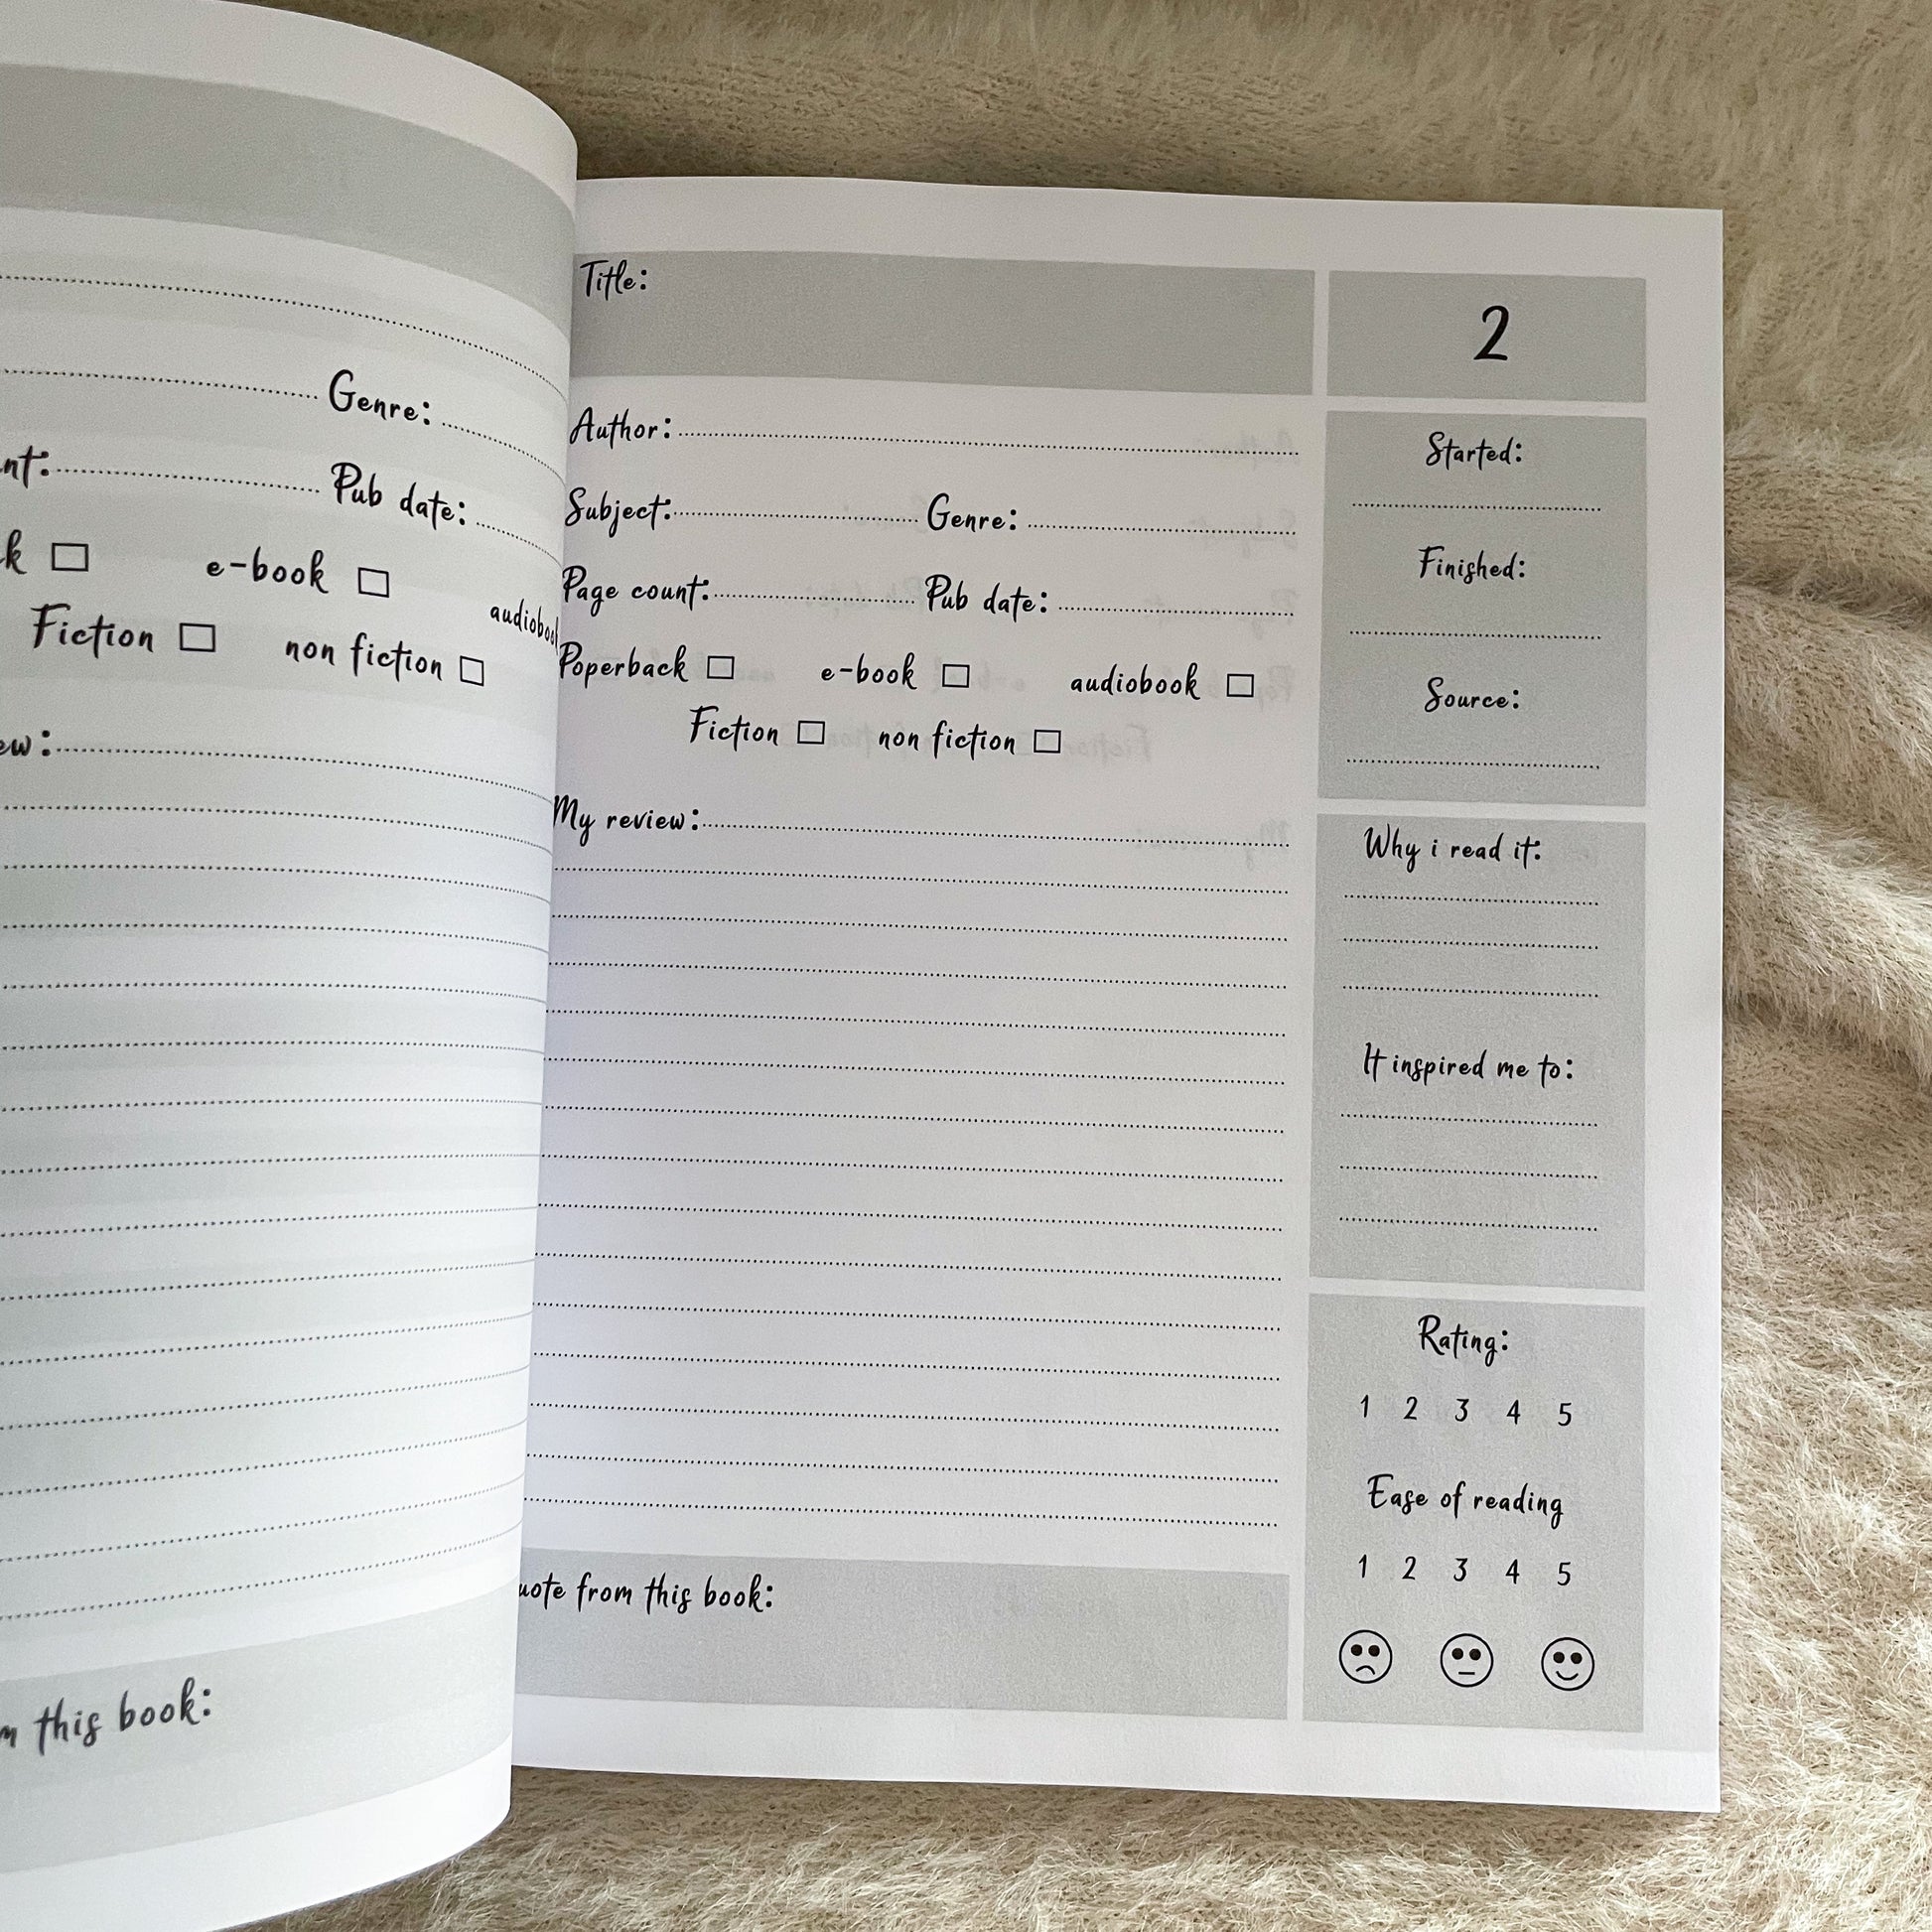 Genre:
nt:
Pub date:
k
e-book
audiobook
Fiction
non fiction
ew:
m this book:
Title:
2
Author:
Subject:
Genre:
Page count:
Pub date:
Poperback
e-book
audiobook
Fiction
non fiction
My review:
uote from this book:
Started:
Finished:
Source:
Why i read it:
It inspired me to:
Rating:
1 2 3 4 5
Ease of reading
1 2 3 4 5